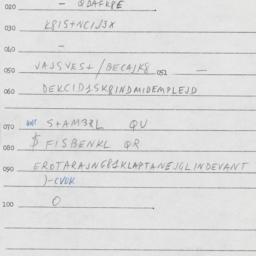 020 — QDAFKPE
030 K8IS+NCIJ3X
040 —
050 VAJSVES+/BECAJK8 051 —
060 DEKCID1SK8INDMIDEMPLEJD
070 S+AM3RL QU
080 $ FISBENKL QR
090 EROTARAJNG81KLAPTANEJGLINDEVANT
)-CVUK
100 O